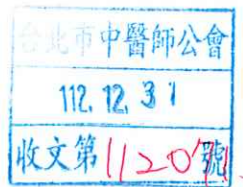 台北市中醫師公會
112.12.31
收文第1120號